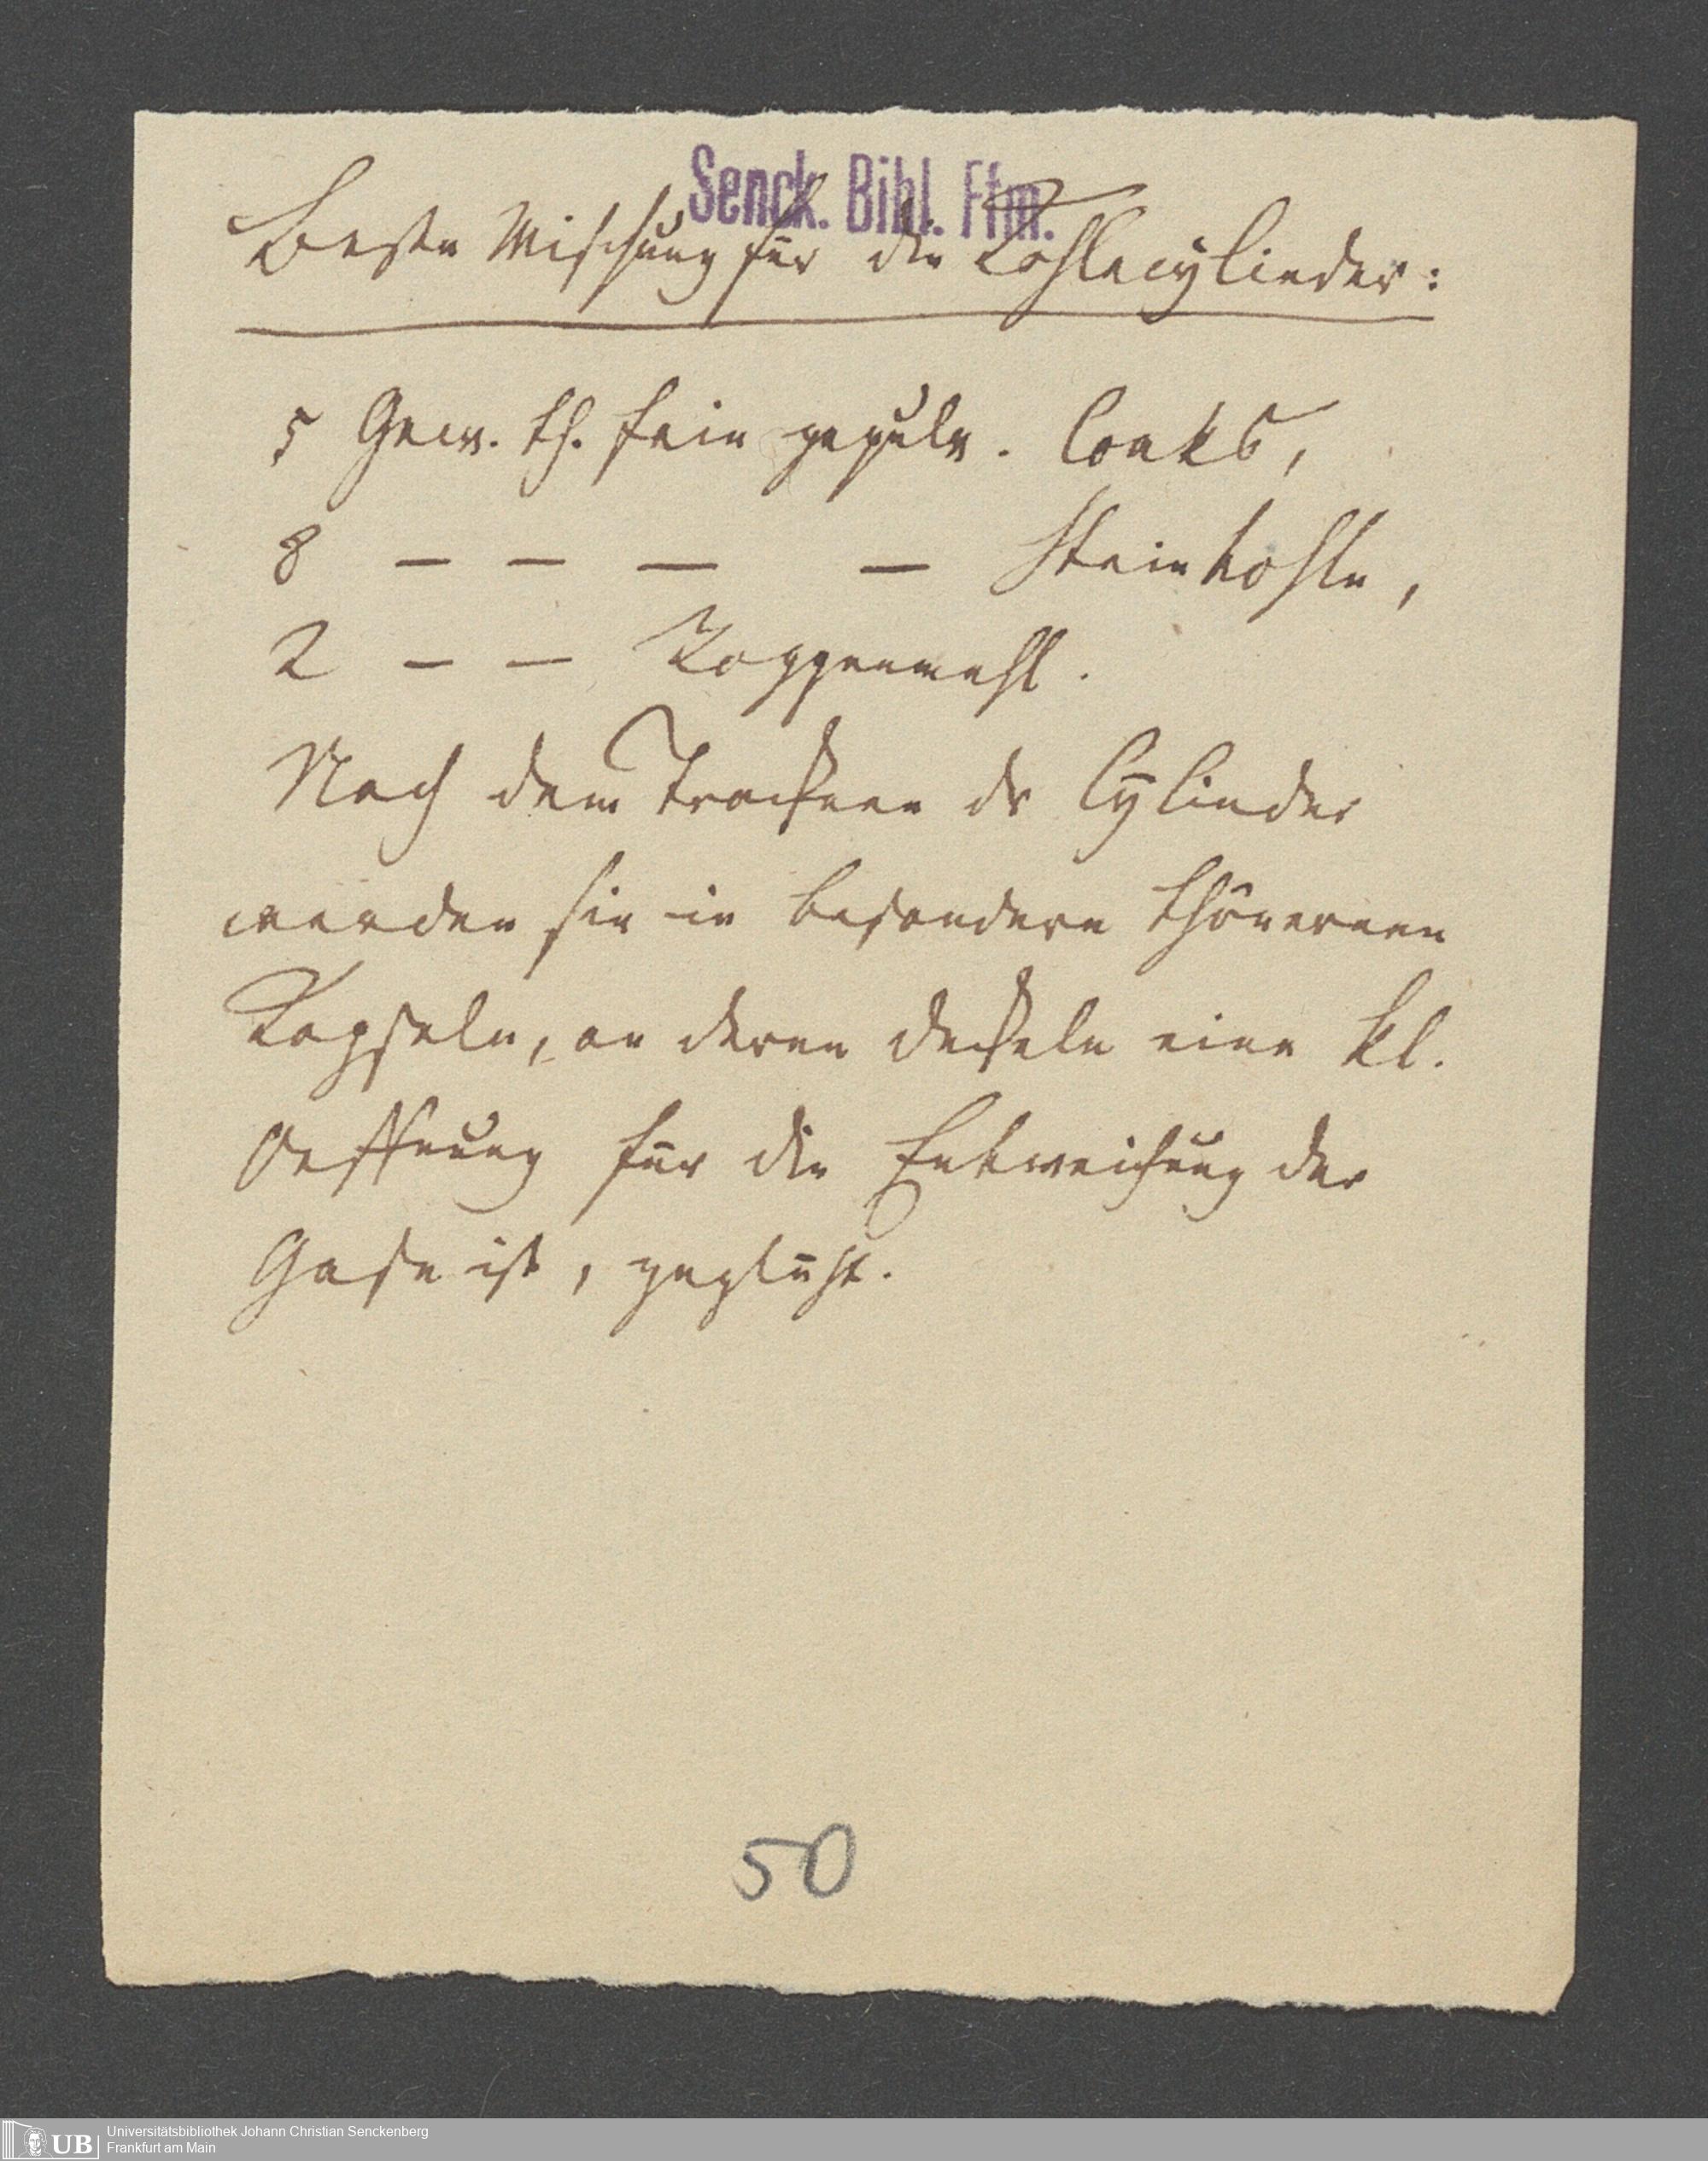 Senck. Bibl. Ffm.
Beste Mischung für die Kohlecylinder:
5 Gew. th. fein gepulv. Coaks,
8 — — — — Steinkohle,
2 — — Roggenmehl.
Nach dem Trocknen der Cylinder
werden sie in besondern thönernen
Kapseln, an deren Deckeln eine kl.
Oeffnung für die Entweichung der
Gase ist, geglüht.
50
UB
Universitätsbibliothek Johann Christian Senckenberg
Frankfurt am Main